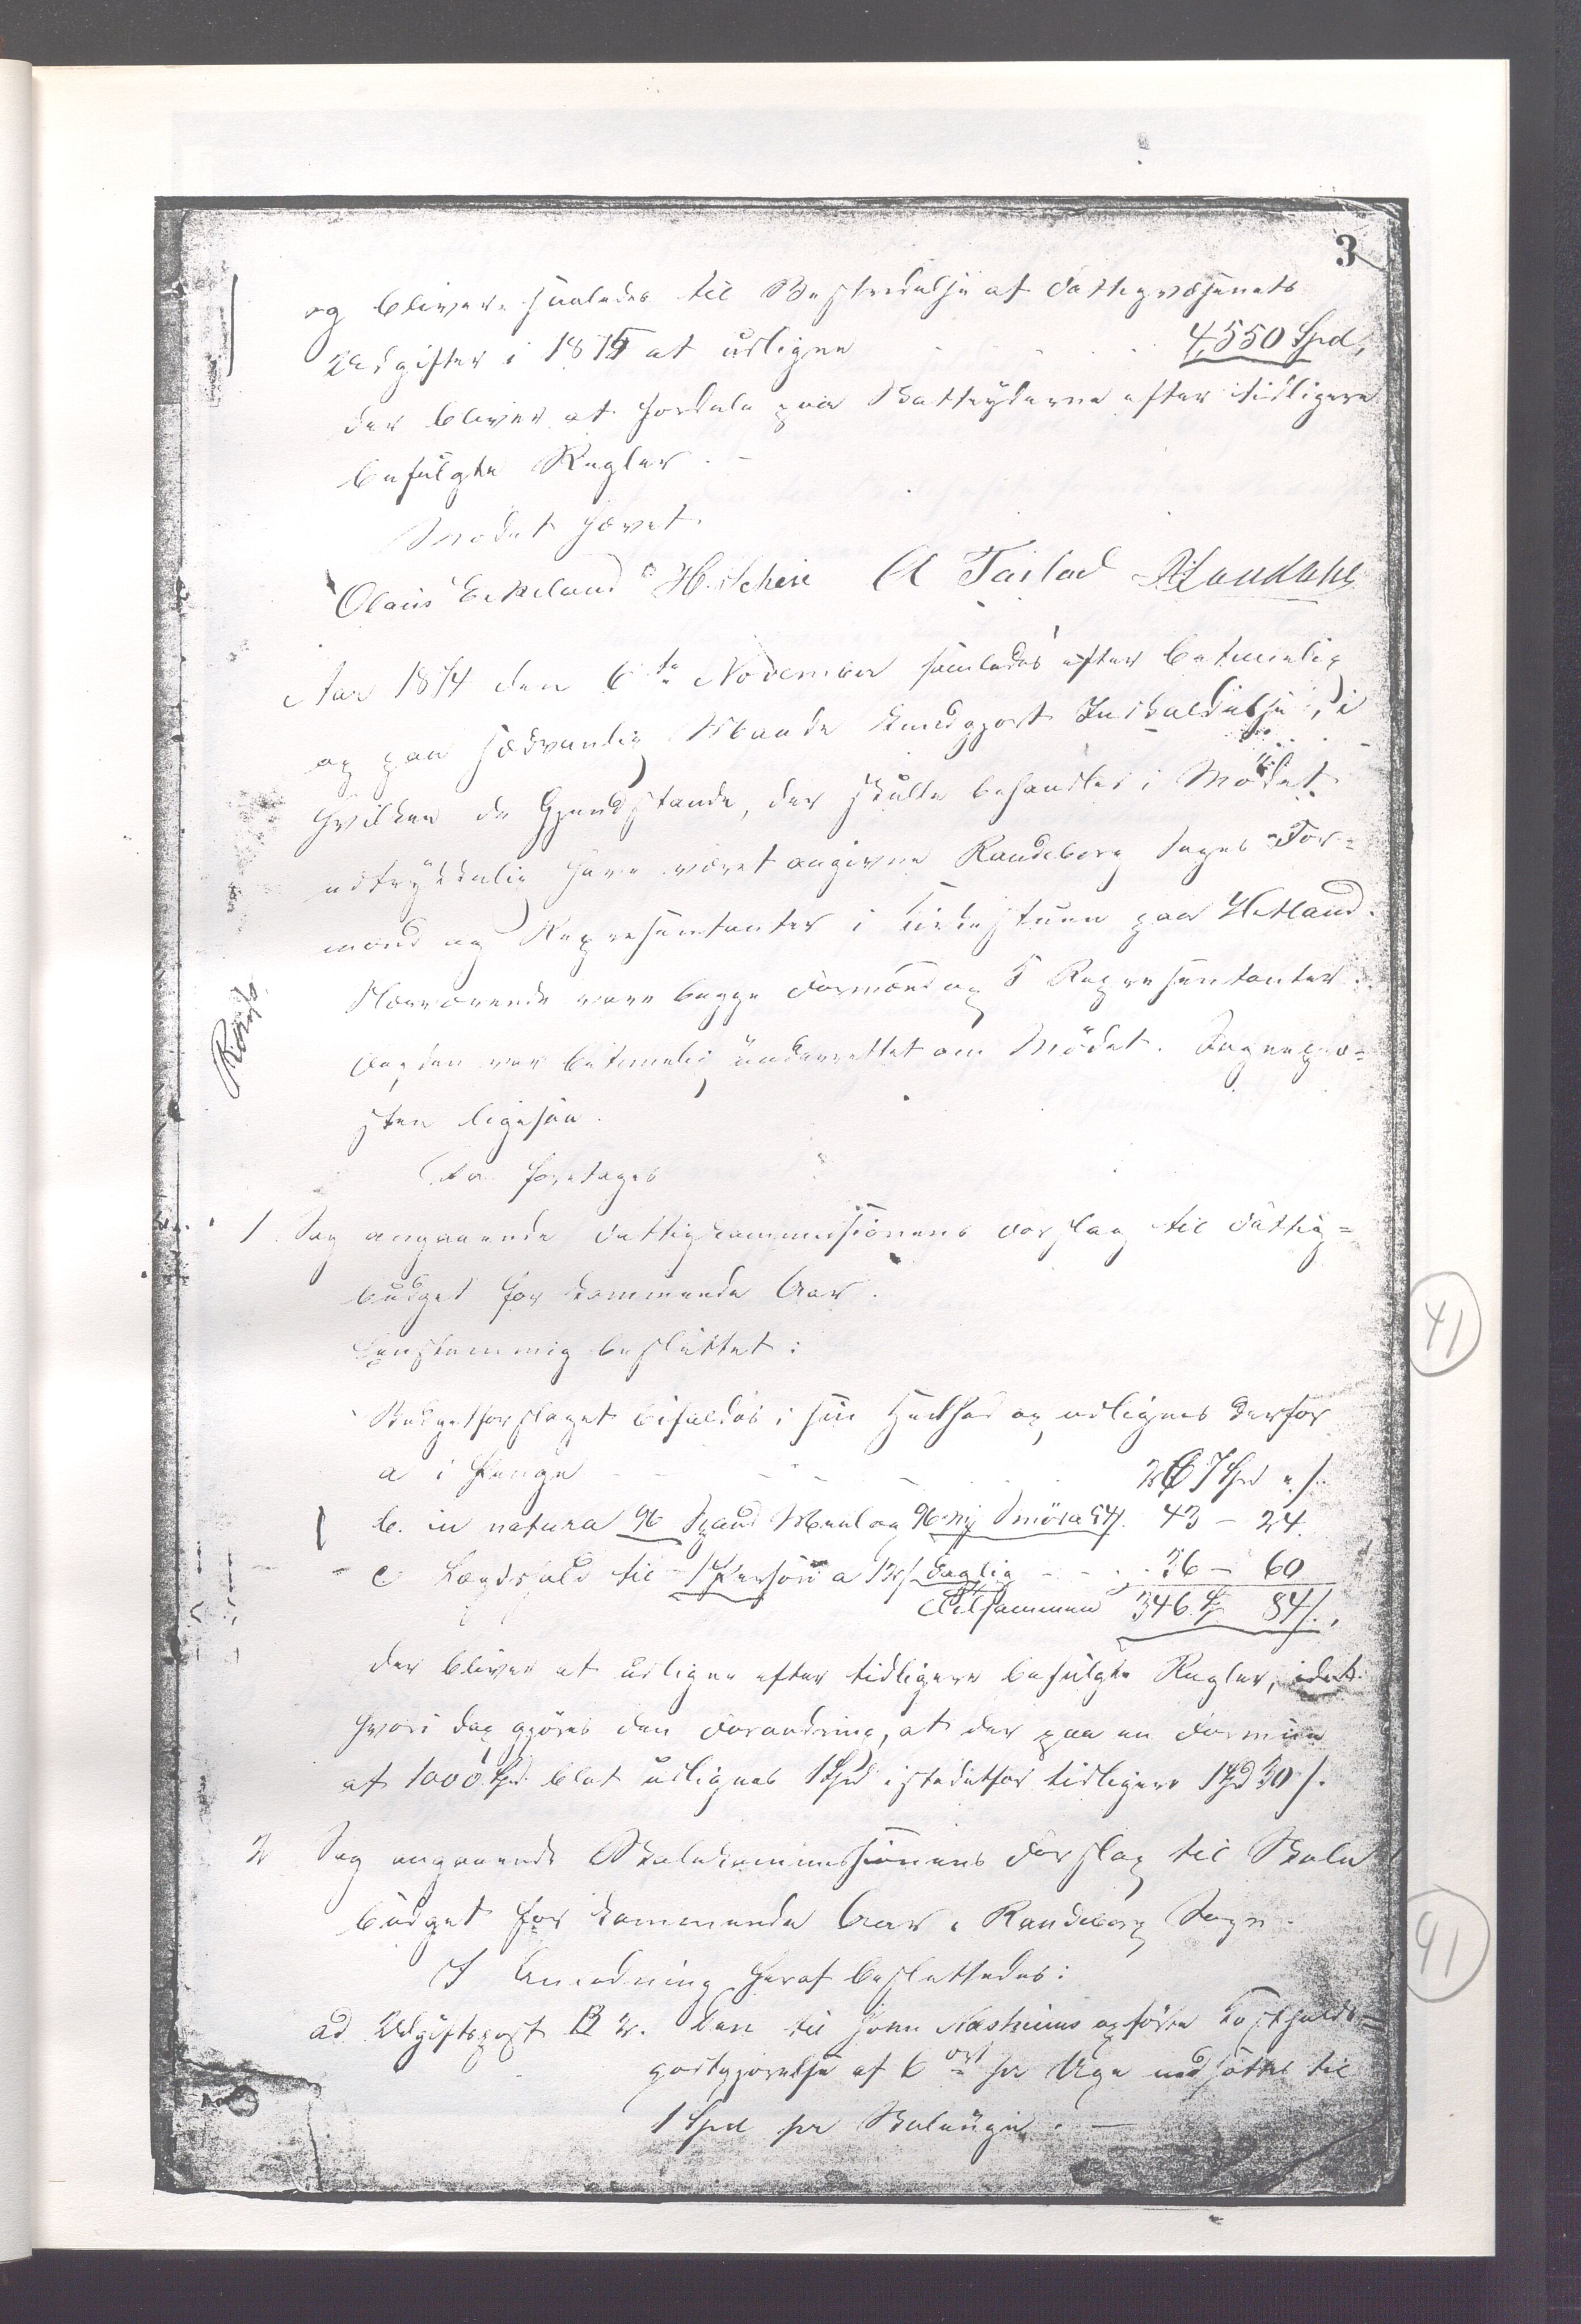 3
og bliver saaledes til Bestridelse af Fattigvæsenets
Udgifter i 1875 at udligne 4,550 Spd,
der bliver at fordele paa Skatteyderne efter tidligere
befulgte Regler. –
Mødet hævet.
Olaus Eskeland H. Scheie A Tasta
Aar 1874 den 6te November samledes efter betimelig
og paa sædvanlig Maade kundgjort Indkaldelse, i
hvilken de Gjenstande, der skulle behandles i Mødet
udtrykkelig have været angivne Randeberg Sogns For=
mænd og Repræsentanter i Tingstuen paa Hetland.
Nærværende vare begge Formænd og 5 Repræsentanter.
Fogden var betimelig underrettet om Mødet. Sognepræ=
sten ligesaa.
Randb.
Da foretoges
1 Sag angaaende Fattigcommissionens Forslag til Fattig=
budget for kommende Aar.
Eenstemmig besluttet:
Budgetforslaget bifaldes i sin Heelhed og udlignes derfor
a i Penge 267 Spd " s.
b. in natura 96 Spand Meel og 96 Mk Smør a 54 s. 43 – 24.
c Lægdshold til 1 Person a 12 s daglig 36 – 60
Tilsammen 346 Sp 84 s.
der bliver at udligne efter tidligere befulgte Regler, idet
hvori dog gjøres den Forandring, at der paa en Formue
af 1000 Spd. blot udlignes 1 Spd istedetfor tidligere 1 Spd 30 s.
2 Sag angaaende Skolekommissionens Forslag til Skole
budget for kommende Aar i Randeberg Sogn.
I Anledning heraf besluttedes:
ad Udgiftspost B 2. Den til opførte Kostholds=
godtgjørelse af 6 ort pr Uge nedsættes til
1 Spd pr Skoleuge. –
41
41